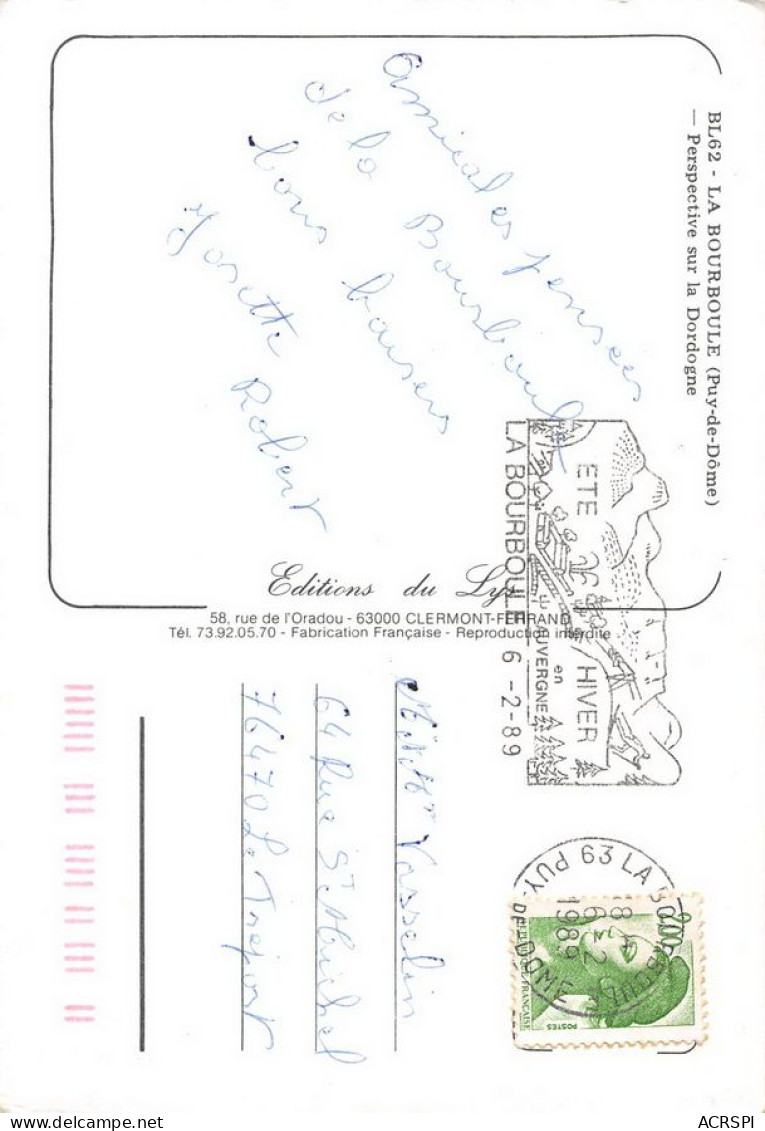 BL62 - LA BOURBOULE (Puy-de-Dôme)
— Perspective sur la Dordogne
Amicales pensées
de la Bourboule
bons baisers
Josette Robert
Editions du Lys
58, rue de l'Oradou - 63000 CLERMONT-FERRAND
Tél. 73.92.05.70 - Fabrication Française - Reproduction interdite
ETE HIVER
en
AUVERGNE
LA BOURBOULE 6 -2-89
63 LA BOURBOULE
18 H
6-2
1989
PUY-DE-DOME
2,00
REPUBLIQUE FRANÇAISE
POSTES
Vasselin
64 Rue St Michel
76470 Le Treport
ACRSPI